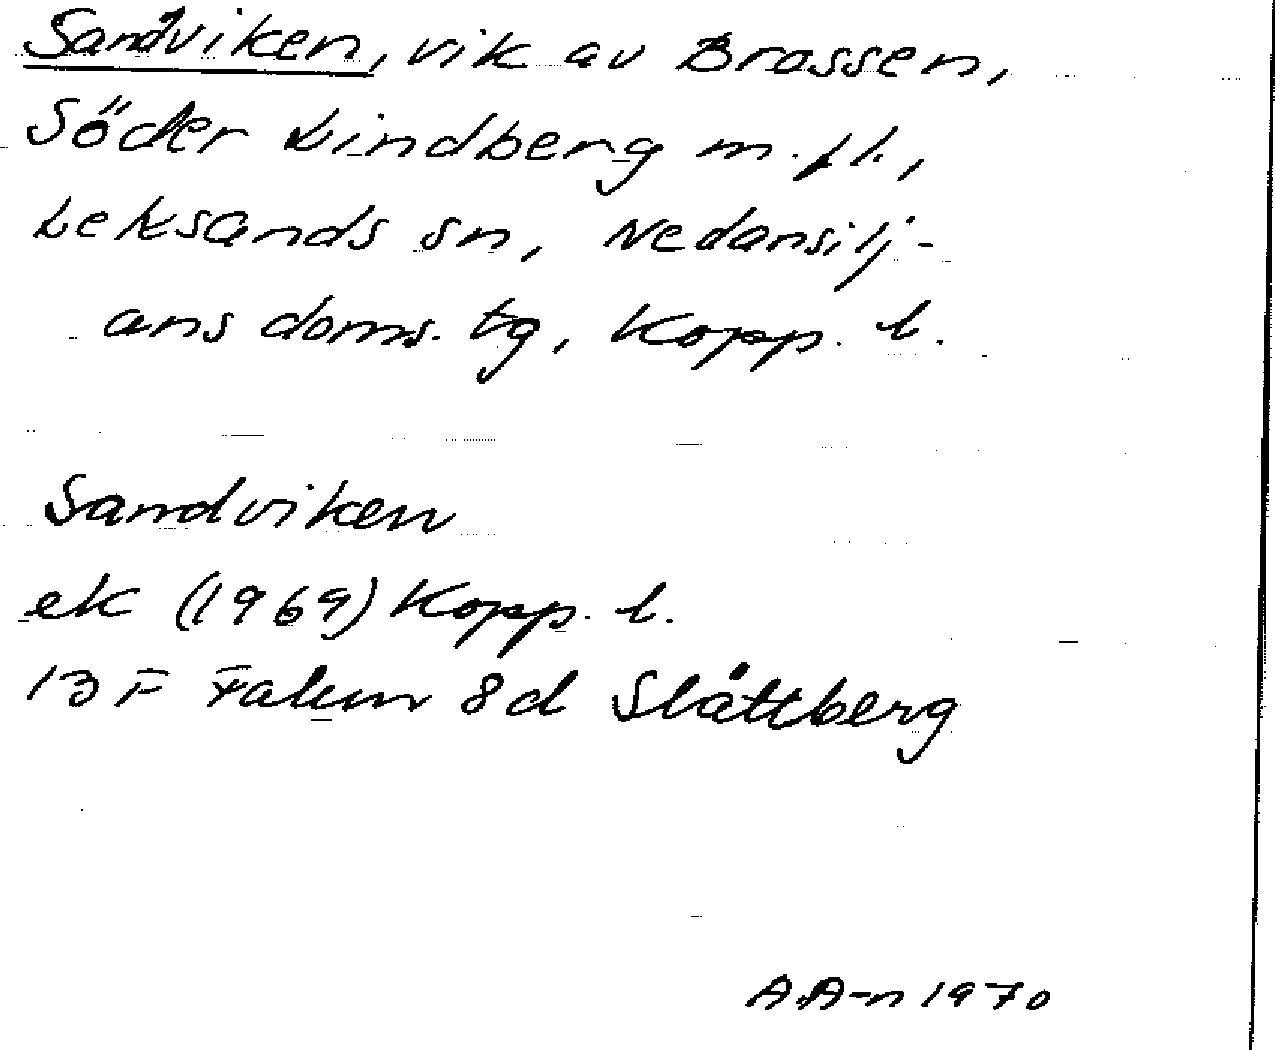 Sandviken, vik av Brossen,
Söder Lindberg m. fl.,
Leksands sn, Nedansilj-
ans doms. tg, Kopp. l.
Sandviken
ek (1969) Kopp. l.
13 F Falun 8d Slättberg
A.A-n 1970